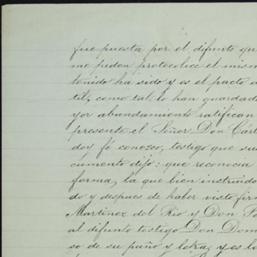 fue puesta por el difunto qu
me piden protocolice el mism
tenido ha sido y es el pacto a
til, como tal lo han guardad
yor abundamiento ratifican
presente el Señor Don Carl
doy fé conocer, testigo que su
cumento dijo: que reconocia
forma, la que bien instruido
do y despues de haber visto fir
Martinez del Rio y Don P
al difunto testigo Don Dom
so de su puño y letra, y es lo